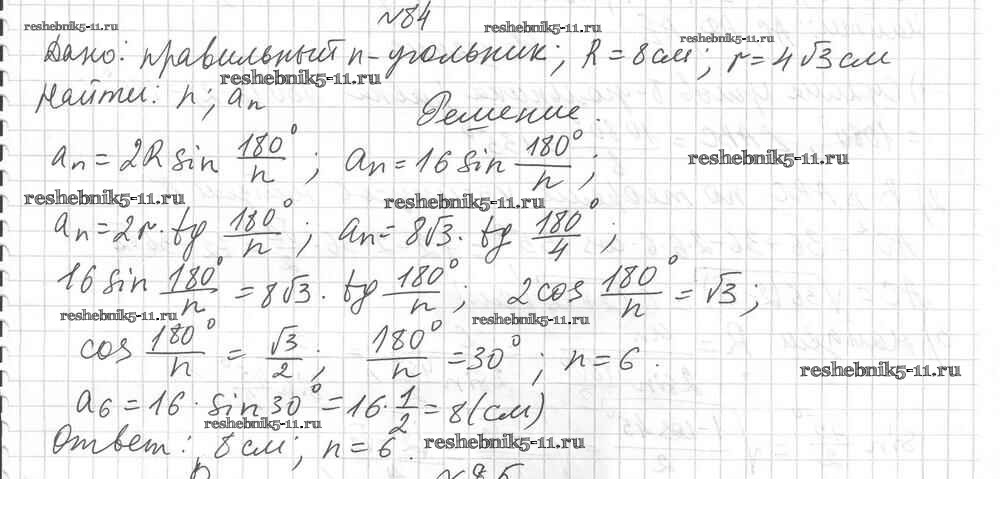 №84
reshebnik5-11.ru reshebnik5-11.ru reshebnik5-11.ru
Дано: правильный n-угольник; R = 8 см; r = 4√3 см
reshebnik5-11.ru
Найти: n; aₙ
Решение.
aₙ = 2R sin 180°/n; aₙ = 16 sin 180°/n;
reshebnik5-11.ru
reshebnik5-11.ru reshebnik5-11.ru
aₙ = 2r · tg 180°/n; aₙ = 8√3 · tg 180°/4;
16 sin 180°/n = 8√3 · tg 180°/n; 2cos 180°/n = √3;
reshebnik5-11.ru reshebnik5-11.ru
cos 180°/n = √3/2; 180°/n = 30°; n = 6.
reshebnik5-11.ru
a₆ = 16 · sin 30° = 16 · 1/2 = 8 (см)
reshebnik5-11.ru
Ответ: 8 см; n = 6.
reshebnik5-11.ru